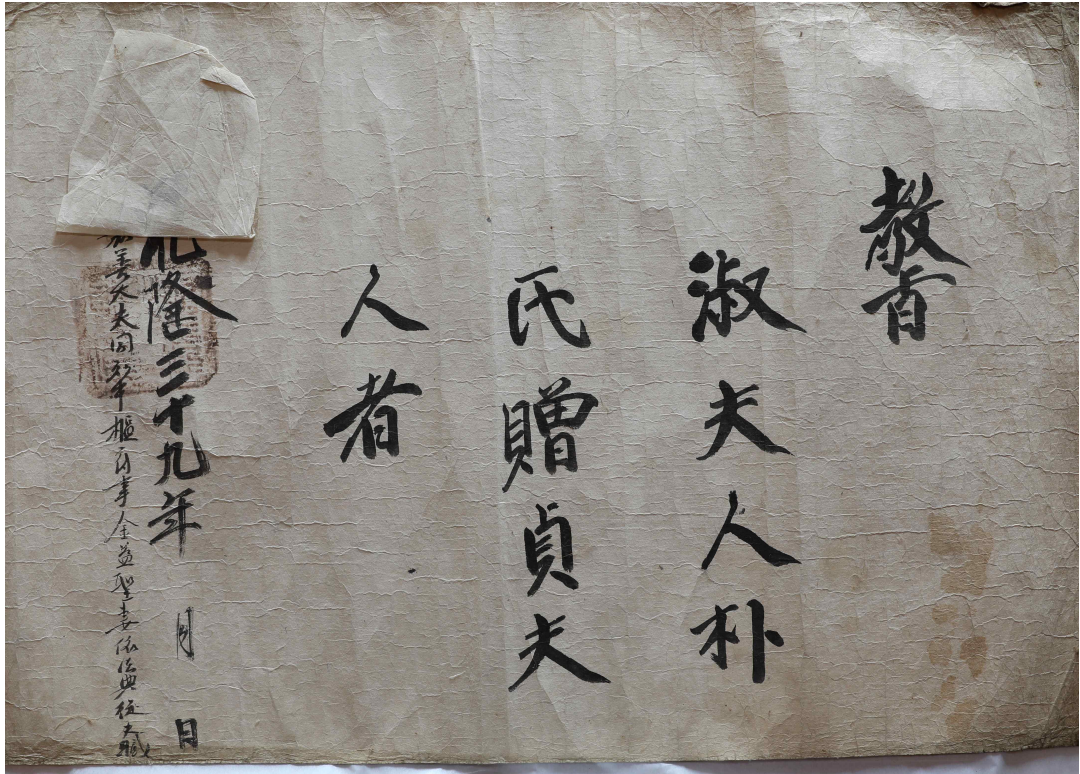 教旨
淑夫人朴
氏贈貞夫
人者
乾隆三十九年 月 日
嘉善大夫同知中樞府事金益聖妻依法典從夫職